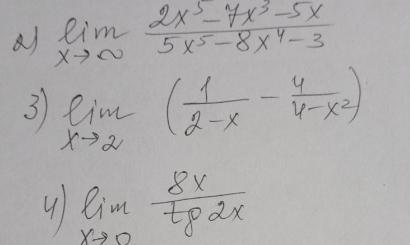 2) lim x→∞ (2x⁵-7x³-5x)/(5x⁵-8x⁴-3)
3) lim x→2 (1/(2-x) - 4/(4-x²))
4) lim x→0 8x/(tg 2x)